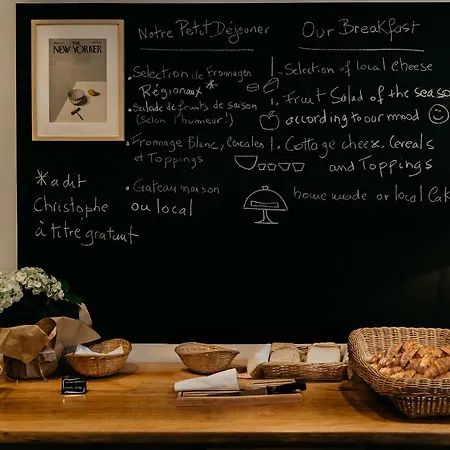 THE
NEW YORKER
Notre Petit Déjeuner
. Sélection de Fromages
Régionaux *
. Salade de fruits de saison
(selon l'humeur!)
. Fromage Blanc, Céréales
et Toppings
. Gateau maison
ou local
* a dit
Christophe
à titre gratuit
Our Breakfast
. Selection of local cheese
. Fruit Salad of the seaso
according to our mood
. Cottage cheex, cereals
and Toppings
home made or local Cak